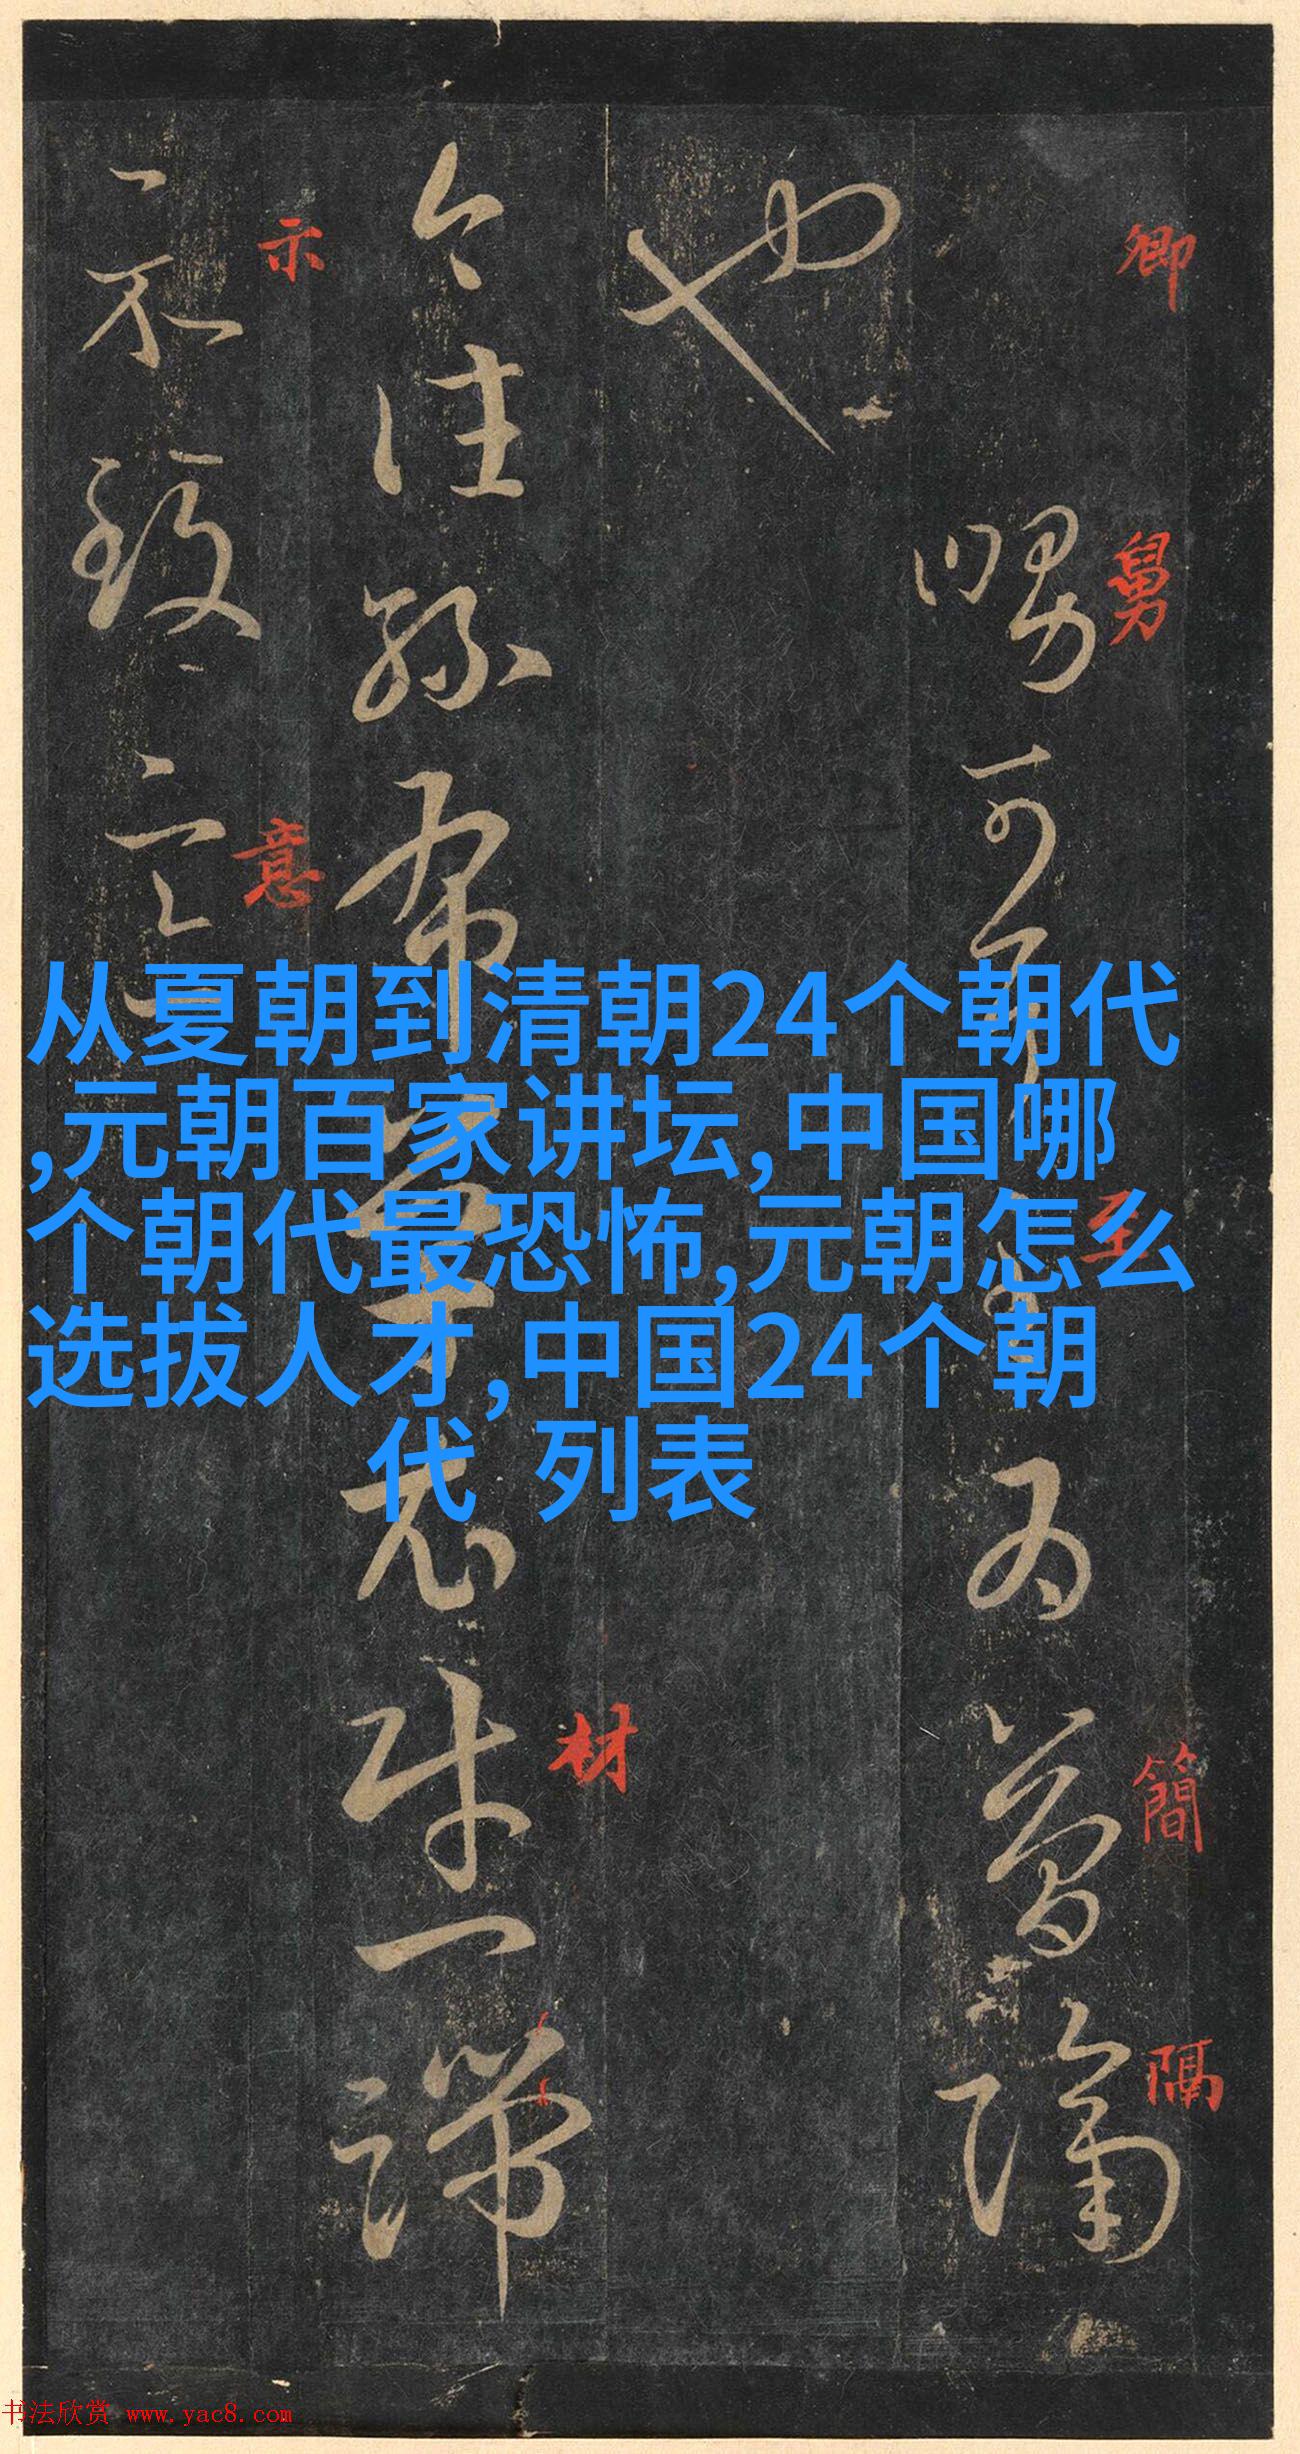 从夏朝到清朝24个朝代
,元朝百家讲坛,中国哪
个朝代最恐怖,元朝怎么
选拔人才,中国24个朝
代 列表
卿
也
舅
可
至
为
簡
隔
今
往
孙
布
材
一
示
不
致
意
书法欣赏 www.yac8.com